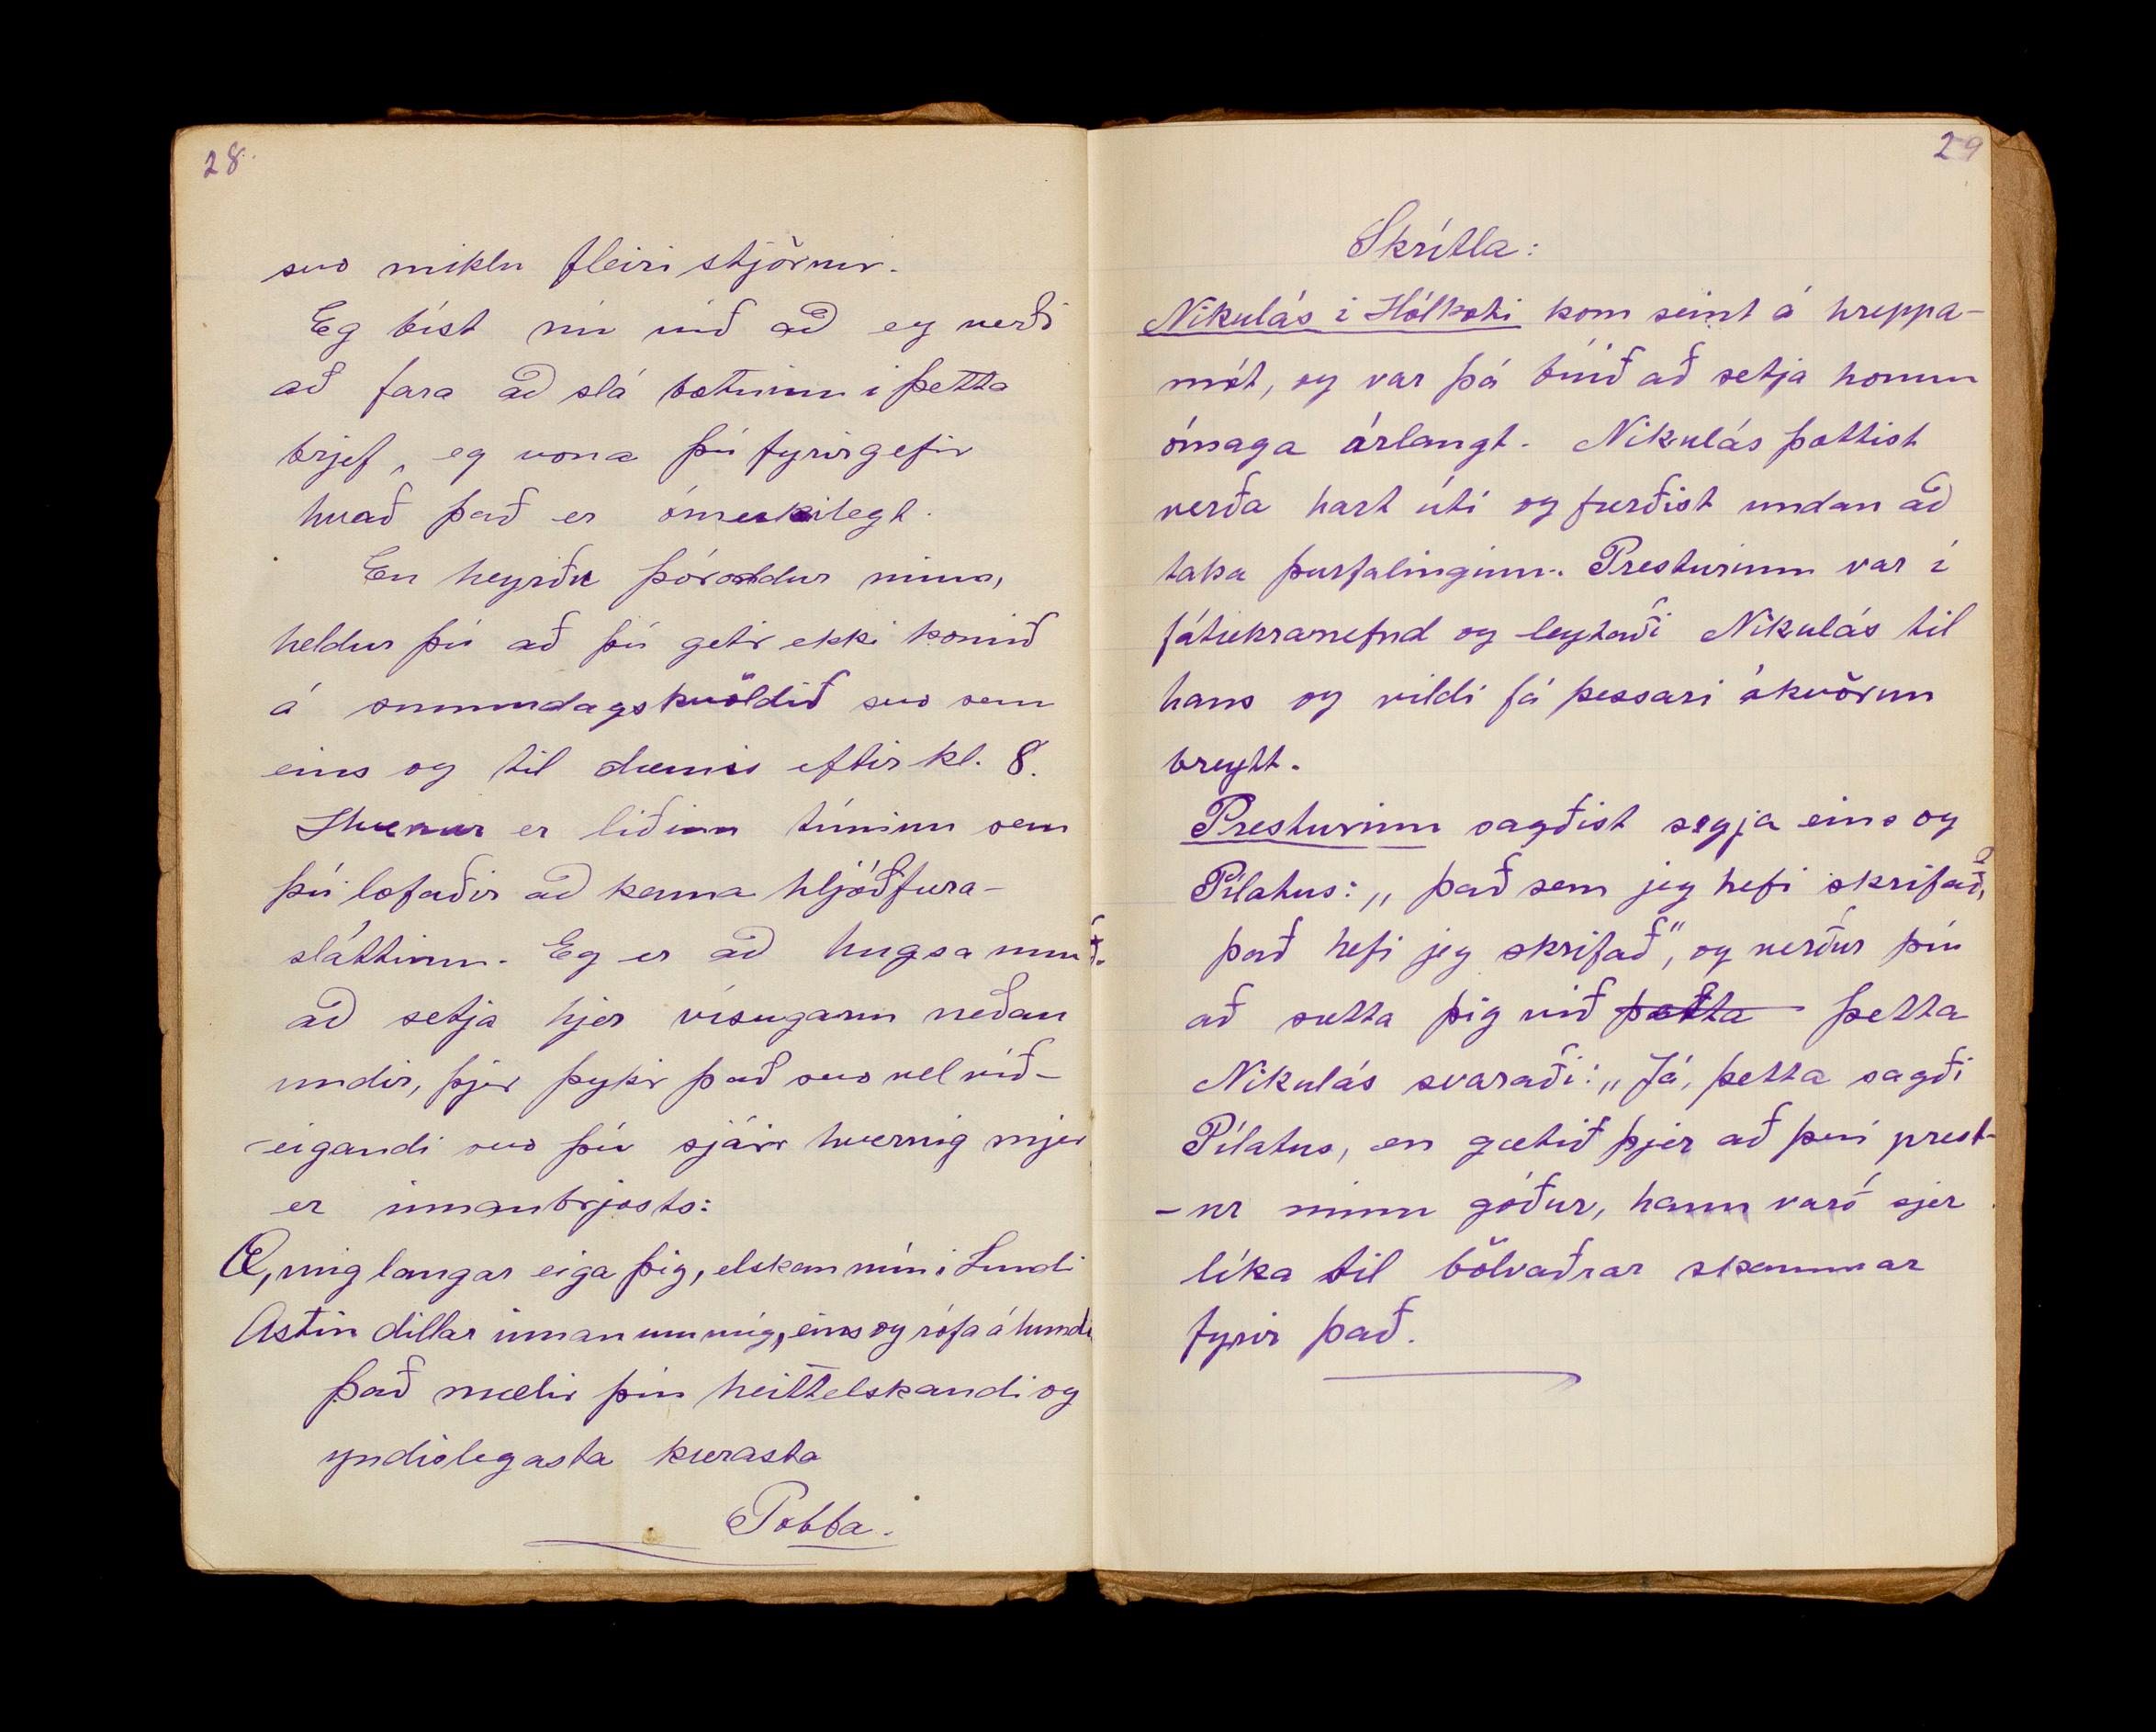 28.
svo miklu fleiri stjörnur.
Eg bíst nú við að eg verði
að fara að slá botninn i þetta
brjef, eg vona þú fyrirgefir
hvað það er ómerkilegt.
En heyrðu þóroddur minn,
heldur þú að þú getir ekki komið
á sunnudagskvöldið svo sem
eins og til dæmis eftir kl. 8.
Hvenur er liðinn tíminn sem
þú lofaðir að kenna hljóðfæra-
sláttinn. Eg er að hugsa um
að setja hjer vísugarm neðan
undir, þjer þykir það svo vel við-
-eigandi svo þú sjáir hvernig mjer
er innanbrjosts:
Æ, mig langar eiga þig, elskan mín i Lundi
Astin dillar innan um mig, eins og rófa á hundi
það mælir þín heittelskandi og
yndislegasta kærasta
Tobba.
29
Skrítla:
Nikulás i Hólkoti kom seint á hreppa-
mót, og var þá búið að setja honum
ómaga árlangt. Nikulás þottist
verða hart úti og færðist undan að
taka þurfalinginn. Presturinn var i
fátækranefnd og leytaði Nikulás til
hans og vildi fá þessari ákvörun
breytt.
Presturinn sagðist segja eins og
Pílatus: „það sem jeg hefi skrifað,
það hefi jeg skrifað", og verður þú
að sætta þig við þetta þetta
Nikulás svaraði: „Já, þetta sagði
Pílatus, en gætið þjer að því prest-
-ur minn góður, hann varð sjer
líka til bölvaðrar skammar
fyrir það.